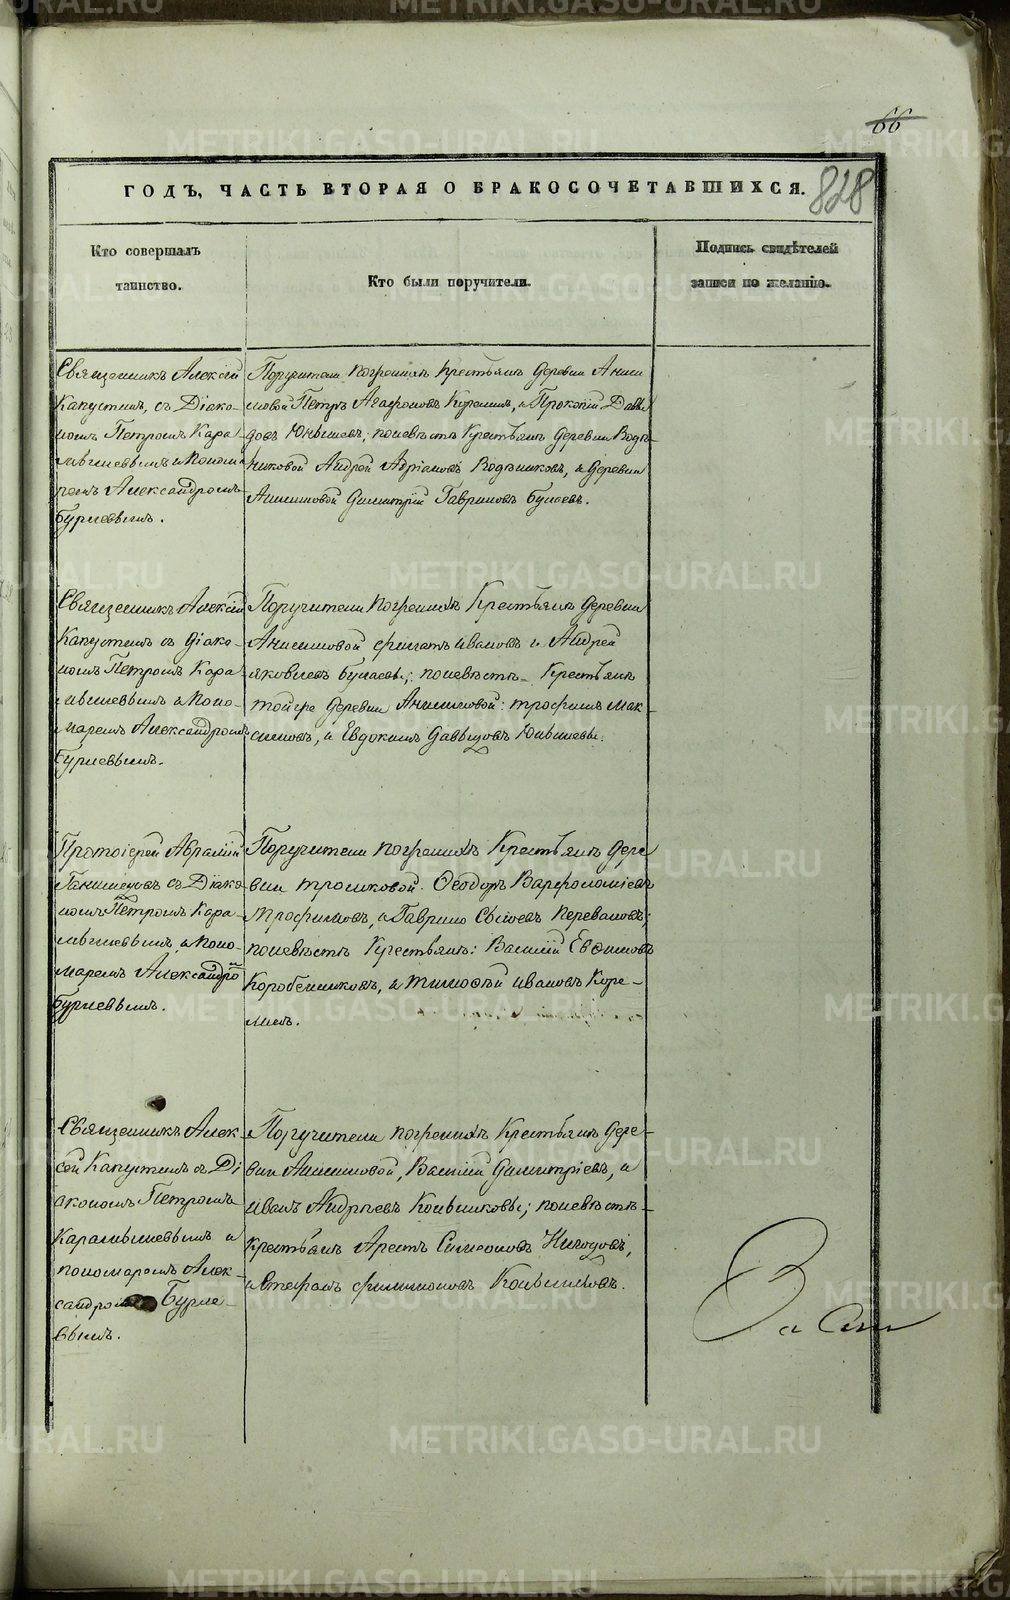 66
828
ГОДЪ, ЧАСТЬ ВТОРАЯ О БРАКОСОЧЕТАВШИХСЯ.
Кто совершалъ
таинство.
Кто были поручители.
Подпись свидѣтелей
записи по желанію.
Священникъ Алексій
Капустинъ, съ Діако-
номъ Петромъ Кара-
мышевымъ и Понома
ремъ Александромъ
Бурневымъ.
Поручители пожених Крестьянъ деревни Аниси
мовой Петръ Агафоновъ Коремин, и Прокопій Давы
довъ Юнышев; поневѣстѣ Крестьянъ деревни Водѣ
никовой Андрей Адріановъ Водѣниковъ, и деревни
Анисимовой Димитрій Гавриловъ Булаевъ.
Священникъ Алексій
Капустинъ съ діако-
номъ Петромъ Кара
мышевымъ и Поно-
маремъ Александромъ
Бурневымъ.
Поручители пожених Крестьянъ деревни
Анисимовой Филатъ Ивановъ и Андрей
Яковлевъ Булаевы; поневѣстѣ Крестьянъ
тойже деревни Анисимовой: Трофимъ Мак-
симовъ, и Евдокимъ Давыдовъ Юнышевы.
Протоіерей Авраамій
съ Діако
номъ Петромъ Кара-
мышевымъ, и Поно-
маремъ Александро
Бурневымъ.
Поручители пожених Крестьянъ дере
вни Трошковой Ѳеодоръ Варфоломіевъ
Трофимовъ, и Гаврило Сысоевъ Переваловъ;
поневѣстѣ Крестьянъ: Василій Евѳимовъ
Коробейниковъ, и Тимоѳей Ивановъ Коре-
минъ.
Священникъ Алек
сей Капустинъ съ Ді
акономъ Петромъ
Карамышевымъ и
пономаремъ Алек-
сандромъ Бурне-
вымъ.
Поручители пожених Крестьянъ дере-
вни Анисимовой, Василій Димитріевъ, и
Иванъ Андреевъ Конышковы; поневѣстѣ
Крестьянъ Арестъ Симеоновъ
и Стефанъ Филимоновъ
METRIKI.GASO-URAL.RU